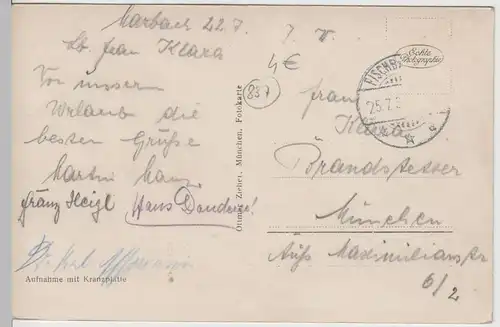 Marbach 22.7.
Lb. Frau Klara
Von unserm
Urlaub die
besten Grüße
Martin
Franz Heigl Hans
Aufnahme mit Kranzplatte
Ottmar Zieher, München. Fotokarte
4€
837
Echte
Photographie
FISCHB
25.7.
Frau
Klara
Brandstetter
München
Äuß. Maximilianstr
6/2